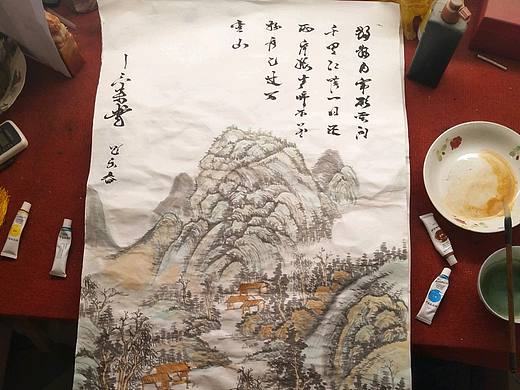 朝辞白帝彩云间
千里江陵一日还
两岸猿声啼不
轻舟已过万
重山